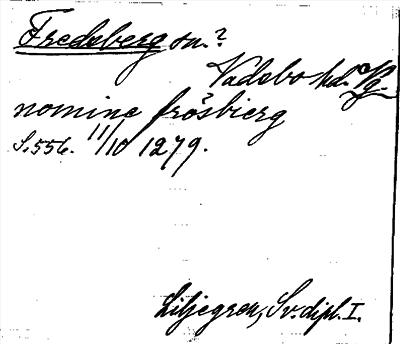 Fredeberg sn.?
Vadsbo hd. Vg.
nomine frösbierg
S. 556. 11/10 1279.
Liljegren, Sv. dipl. I.